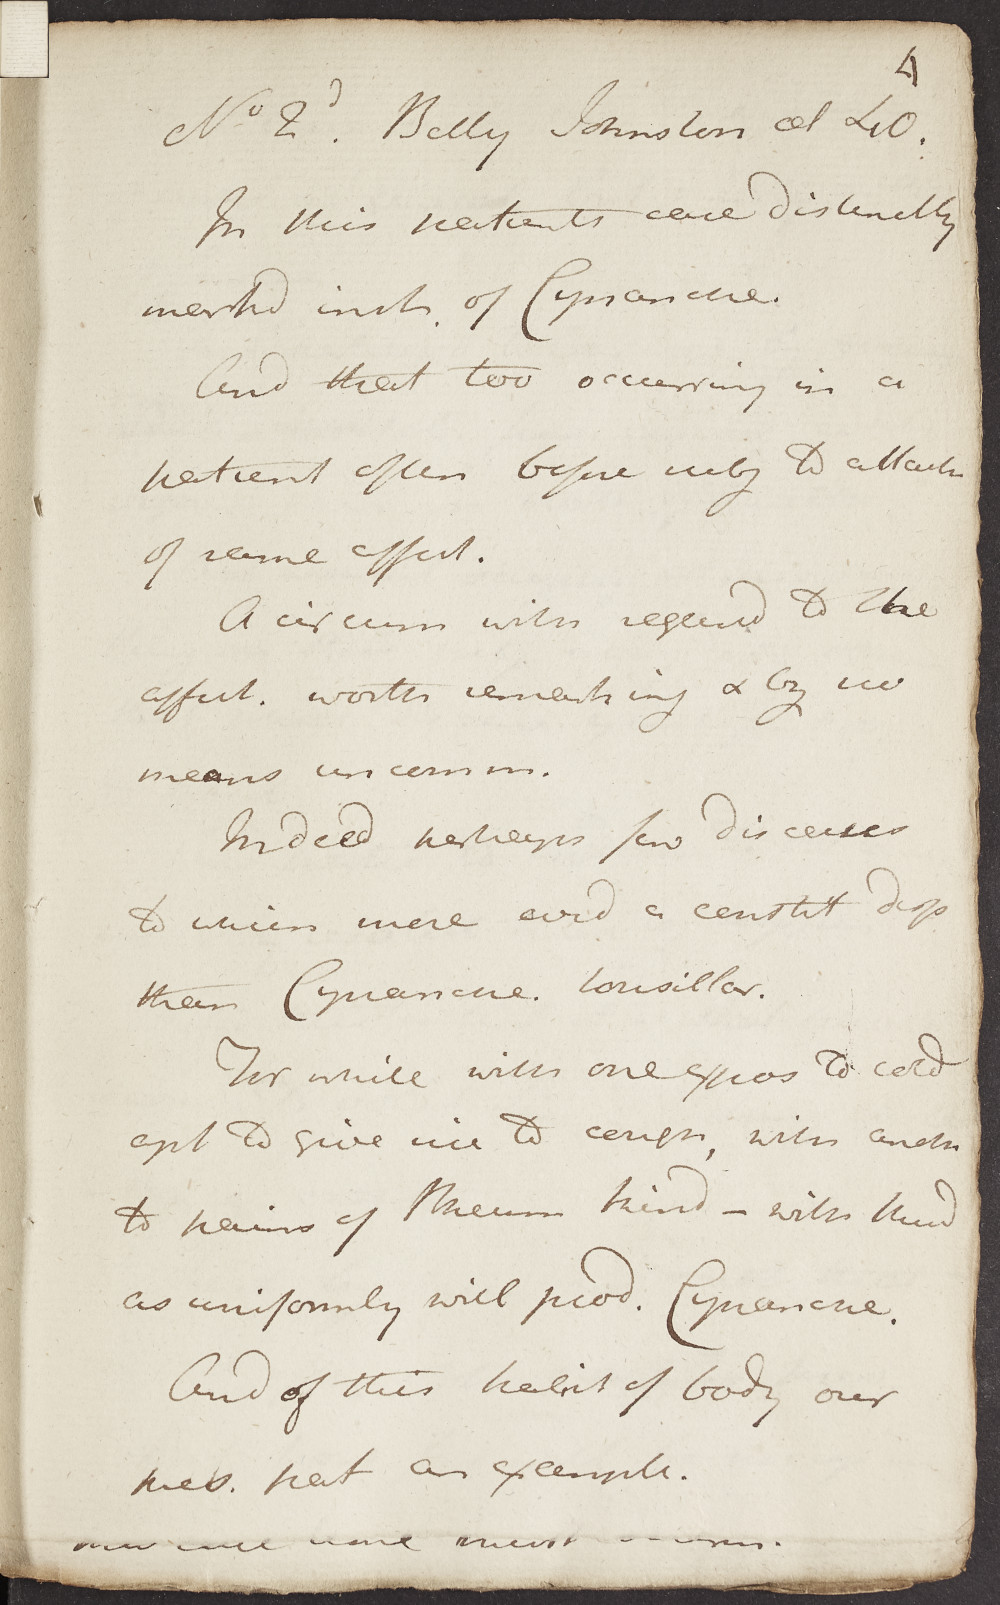 4
No 2d. Betty Johnston æt 40.
In this patients case distinctly
markd inst. of Cynanche.
And that too occurring in a
patient often before subj to attacks
of same affect.
A circum with regard to the
affect. worth remarking & by no
means uncomm.
Indeed perhaps few diseases
to which more evid a constit disp
than Cynanche. tonsillar.
For while with one expos to cold
apt to give rise to cough, with anoth
to pains of Rheum kind - with third
as uniformly will prod. Cynanche.
And of this habit of body our
pres. pat an example.